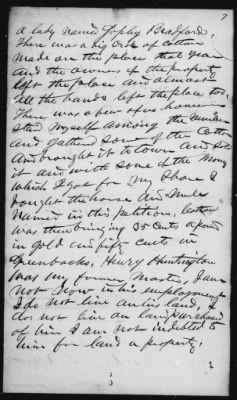 7
a lady named Sophy Bradford.
There was a big crop of cotton
made on the place that year
and the owners of the property
left the place and almost
all the hands left the place too.
There was a few of us, however
Myself among the number
and gathered some of the cotton
and brought it to town and sold
it and with some of the money
which I got for my share I
bought the horse and mule
named in this petition, cotton
was then bringing 35 cents a pound
in gold and fifty cents in
greenbacks. Henry Huntington
was my former master, I am
not now in his employment
I do not live on his land, I
do not live on land purchased
of him I am not indebted to
him for land or property.